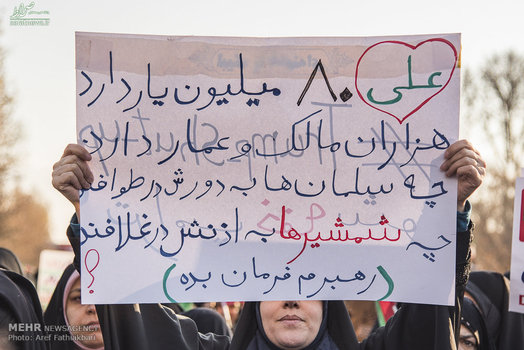 علی ۸۰ میلیون یار دارد
هزاران مالک و عمار دارد
چه سلمان ها به دورش در طوافند
چه شمشیرها به اذنش در غلافند؟
(رهبرم فرمان بده)
MEHR NEWSAGENCY
Photo: Aref Fathiakbari